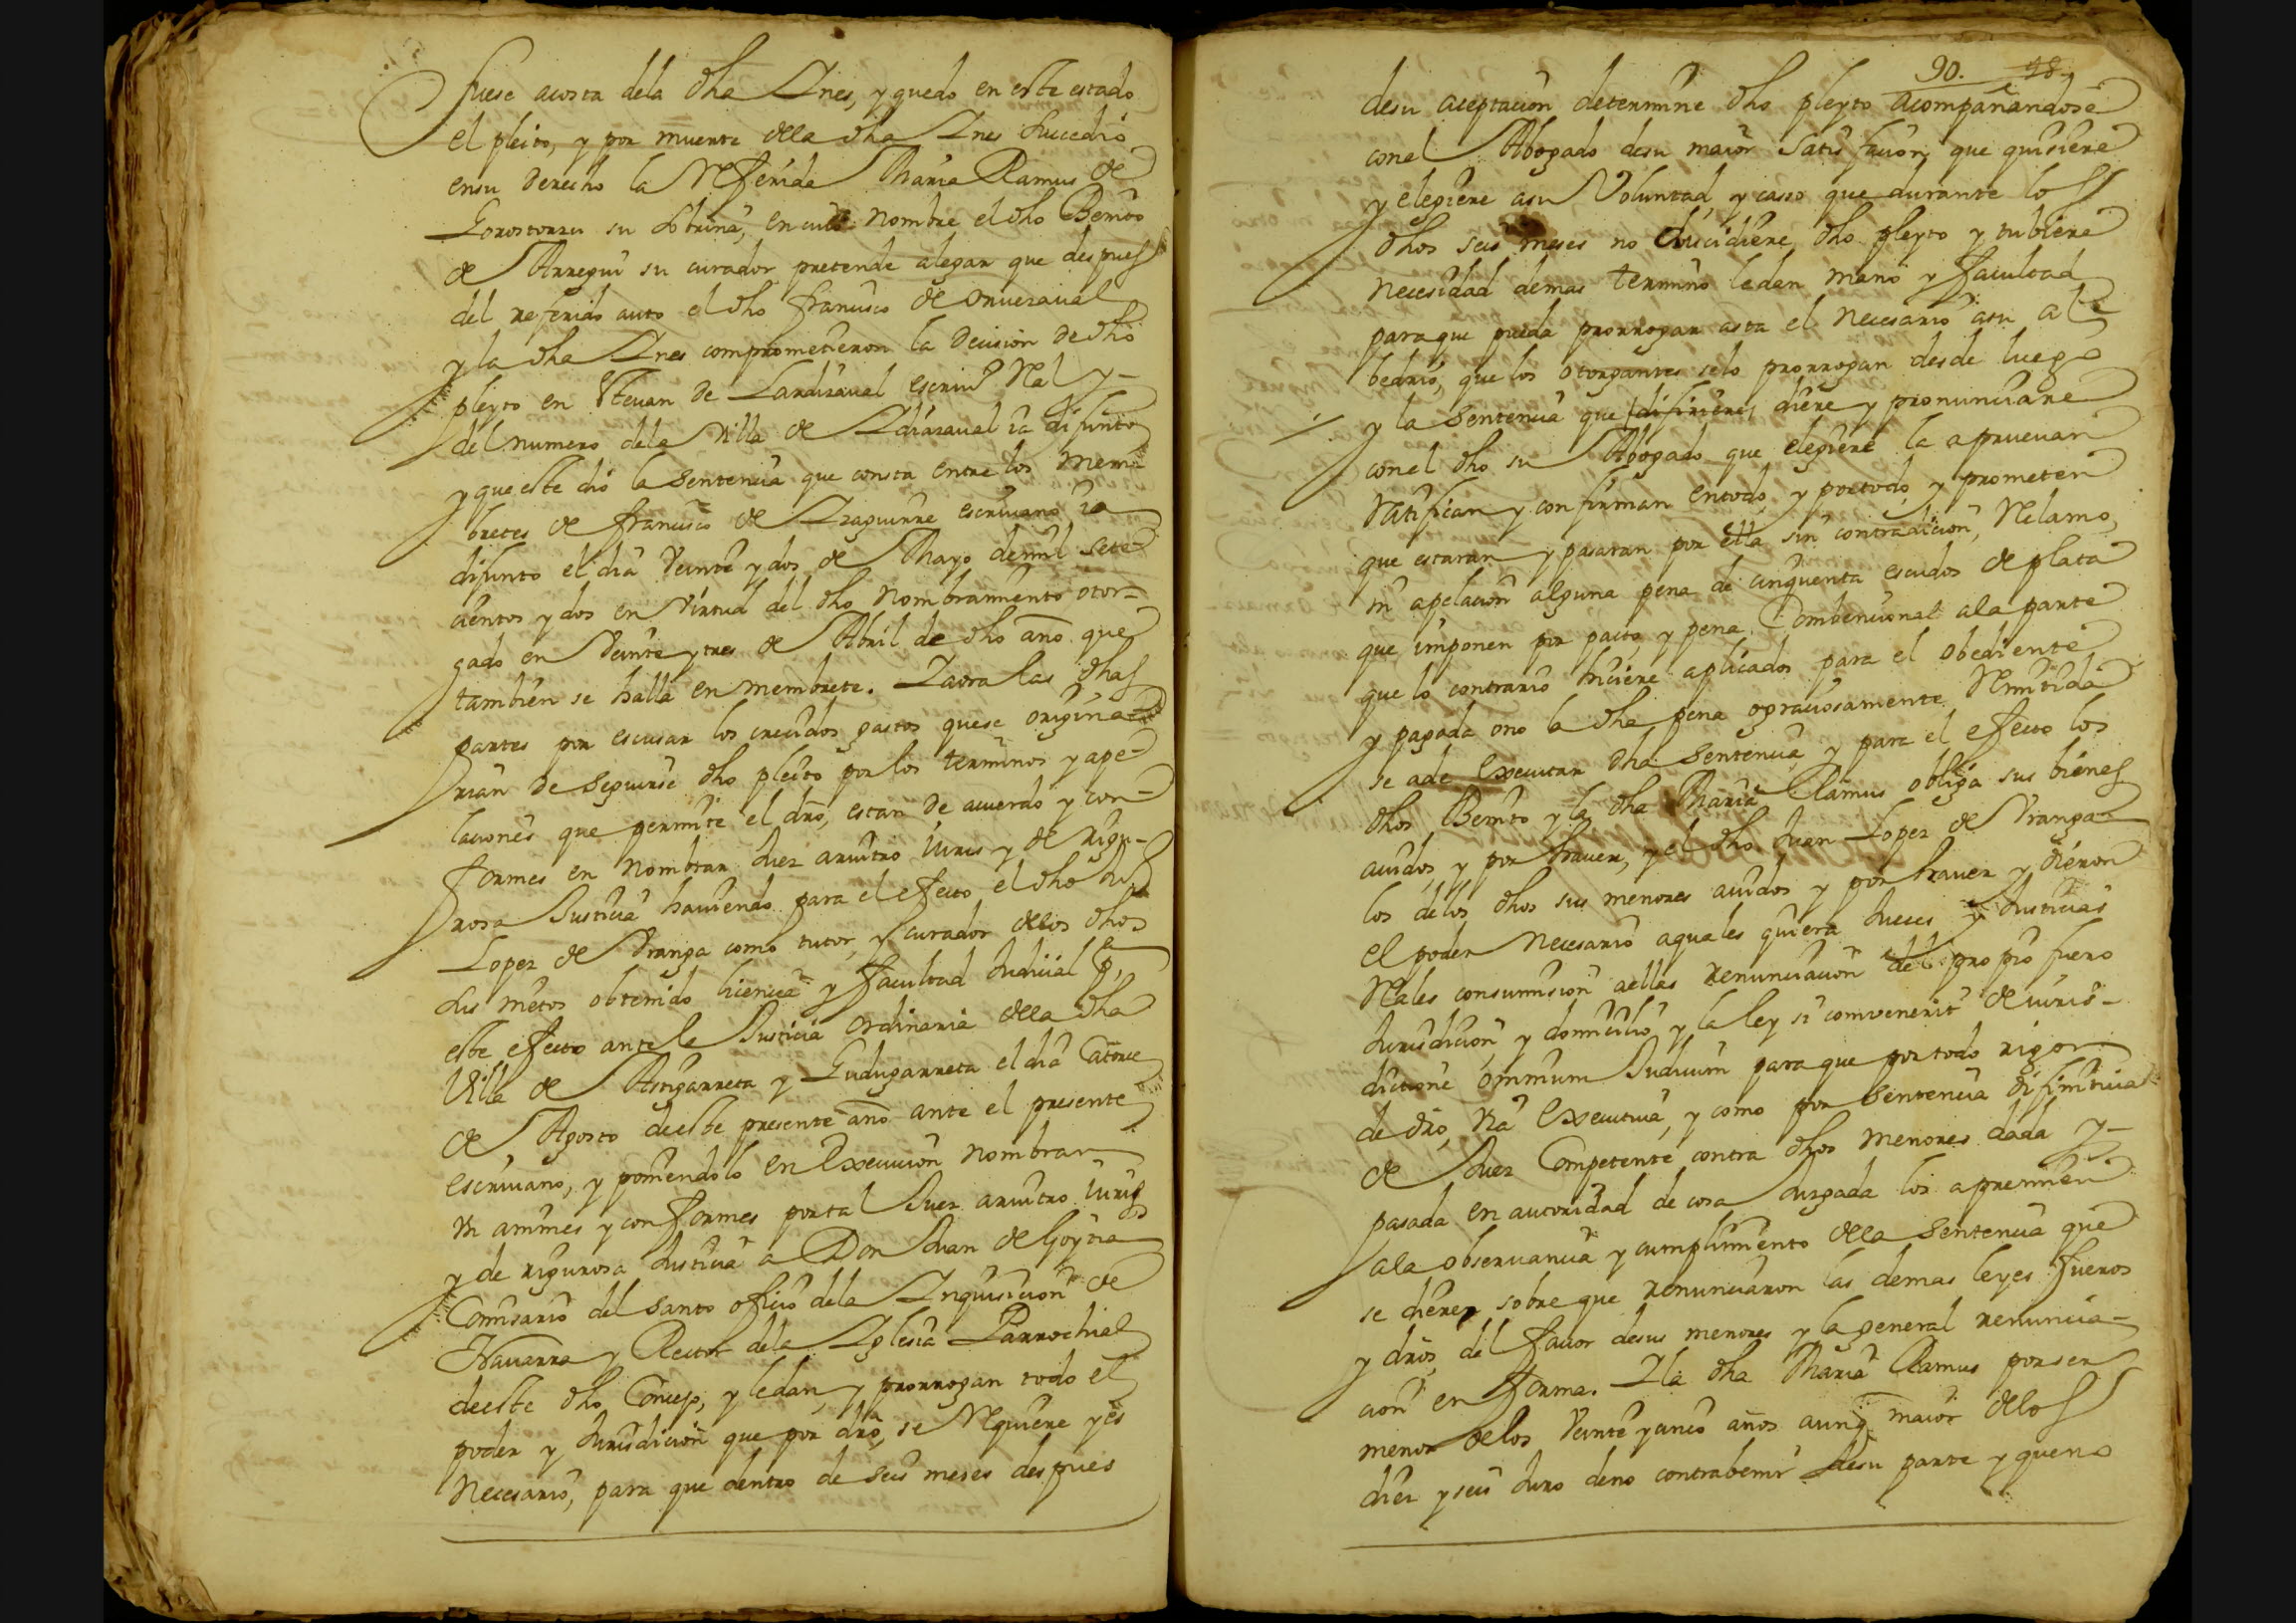 fuese acosta dela dha Ines, y quedo en este estado
el pleito, y por muerte della dha Ines succedio
ensu derecho la Referida Maria Ramus de
Gorostorzu su sobrina, en cuio nombre el dho Benito
de Arregui su curador pretende alegar que despues
del referido auto el dho francisco de Oruezaual
y la dha Ines comprometieron la decision de dho
pleyto en Esteuan de Lardizaual escriuo Ral y
del numero dela Villa de Idiazaual ia difunto
y que este dio la sentencia que consta entre los mem-
bretes de francisco de Izaguirre escriuano ia
difunto el dia Veinte y dos de Mayo demil sete-
cientos y dos en Virtud del dho nombramiento otor-
gado en Veinte y tres de Abril de dho año que
tambien se halla en membrete. Iaora las dhas
partes por escusar los crecidos gastos quese origina-
rian de seguirse dho pleito por los terminos y ape-
laciones que permite el dro, estan de acuerdo y con-
formes en nombrar Juez aruitro iuris y de rigu-
rosa Justicia hauiendo para el efecto el dho Jun
Lopez de Vranga como tutor, y curador dellos dhos
sus nietos obtenido licencia y facultad Judicial pa
este efecto ante la Justicia ordinaria della dha
Villa de Astigarreta y Gudugarreta el dia Catorce
de Agosto deeste presente año ante el presente
escriuano, y poniendolo en Execucion nombran
Vn animes y conformes portal Juez aruitro iuris
y de rigurosa Justicia a Don Juan de Goytia
Comisario del santo oficio dela Inquisicion de
Nauarra y Rector dela Iglesia Parrochial
deeste dho Concejo, y ledan, y prorrogan todo el
poder y Jurisdicion que por dro, se Requiere y es
Necesario, para que dentro de seis meses despues
90. 98
desu aceptacion determine dho pleyto acompañandose
conel Abogado desu maior satisfacion, que quisiere
y elegiere asu Voluntad, y casso que durante los
dhos seis meses no decidiere dho pleyto y tubiere
necesidad demas termino ledan mano y facultad
paraque pueda prorrogar asta el necesario asu al-
bedrio, que los otorgantes selo prorrogan desde luego
y la sentencia que difiniere diere y pronunciare
conel dho su Abogado que elegiere la aprueuan
Ratifican y confirman entodo, y portodo, y prometen
que estaran y pasaran por ella sin contradicion, Relamo,
ni apelacion alguna pena de cinquenta escudos de plata
que imponen por pacto, y pena Combencional ala parte
que lo contrario hiciere aplicados para el obediente
y pagada ono la dha pena ograciosamente Remitida
se ade Executar dha sentencia y para el efecto los
dhos Benito y la dha Maria Ramus obliga sus bienes
auidos, y por hauer, y el dho Juan Lopez de Vranga
los delos dhos sus menores auidos y por hauer y dieron
el poder Necesario aquales quiera Jueces y Justicias
Reales consumision aellas renunciacion del propio fuero
Jurisdicion y domicilio, y la ley si convenerit de iuris-
dictione omnium Judicum para que portodo rigor
de dro, Via Executiua, y como por sentencia difinitiua
de Juez Competente contra dhos menores dada y
pasada en autoridad de cosa Juzgada los apremien
ala obseruancia y cumplimiento della sentencia que
se diere, sobre que renunciaron las demas leyes fueros
y dros, del fauor desus menores y la general renuncia-
cion en forma. Ila dha Maria Ramus porser
menor delos Veinte y cinco años aunq maior dellos
diez y seis Juro deno contrabenir desu parte y que no